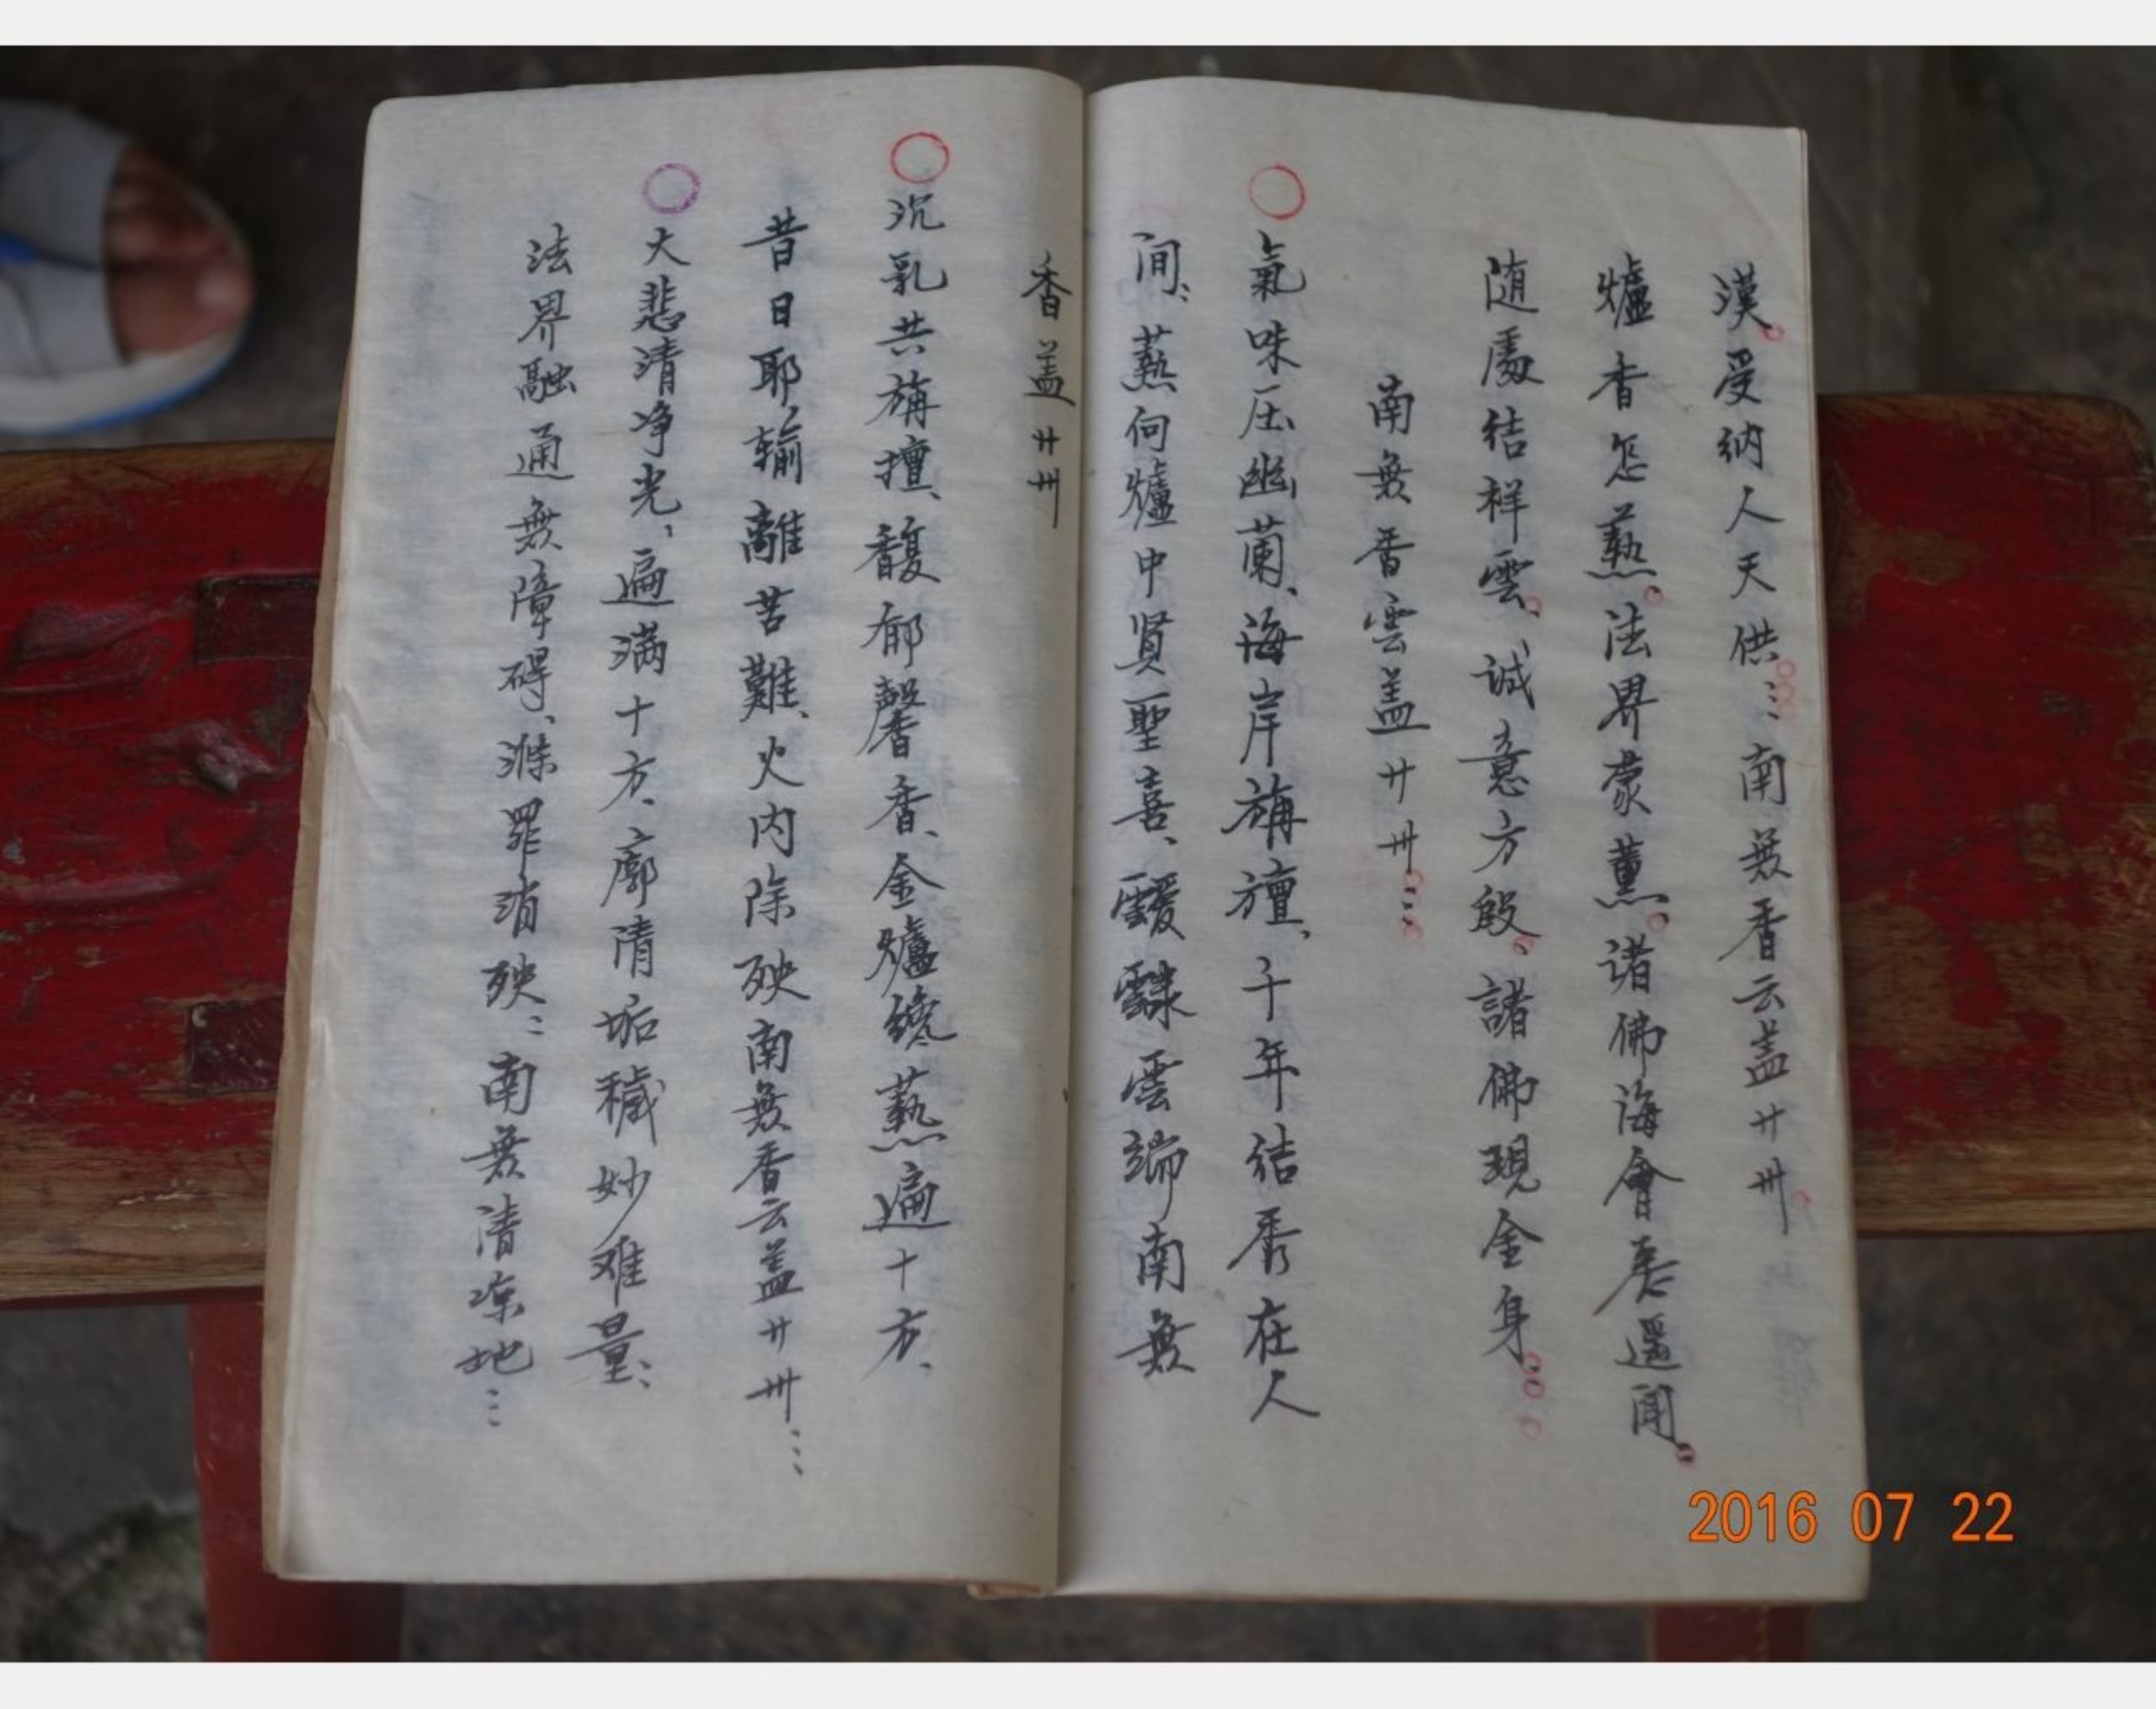 漢受納人天供⋮南無香云盖廾卅
爐香怎爇法界蒙薰诸佛海會悉遥闻
随處结祥雲、誠意方殷、諸佛現金身
南無香雲盖廾卅⋮
氣味压幽蘭、海岸旃檀、千年结秀在人
间：爇向爐中贤聖喜、靉靆雲端南無
香盖廾卅
沉乳共旃擅、馥郁馨香、金爐纔爇遍十方、
昔日耶输離苦難、火内除殃南無香云盖廾卅⋮
大悲清净光，遍满十方、廓清垢穢妙难量：
法界融通無障碍、滌罪消殃：南無清凉地⋮
2016 07 22